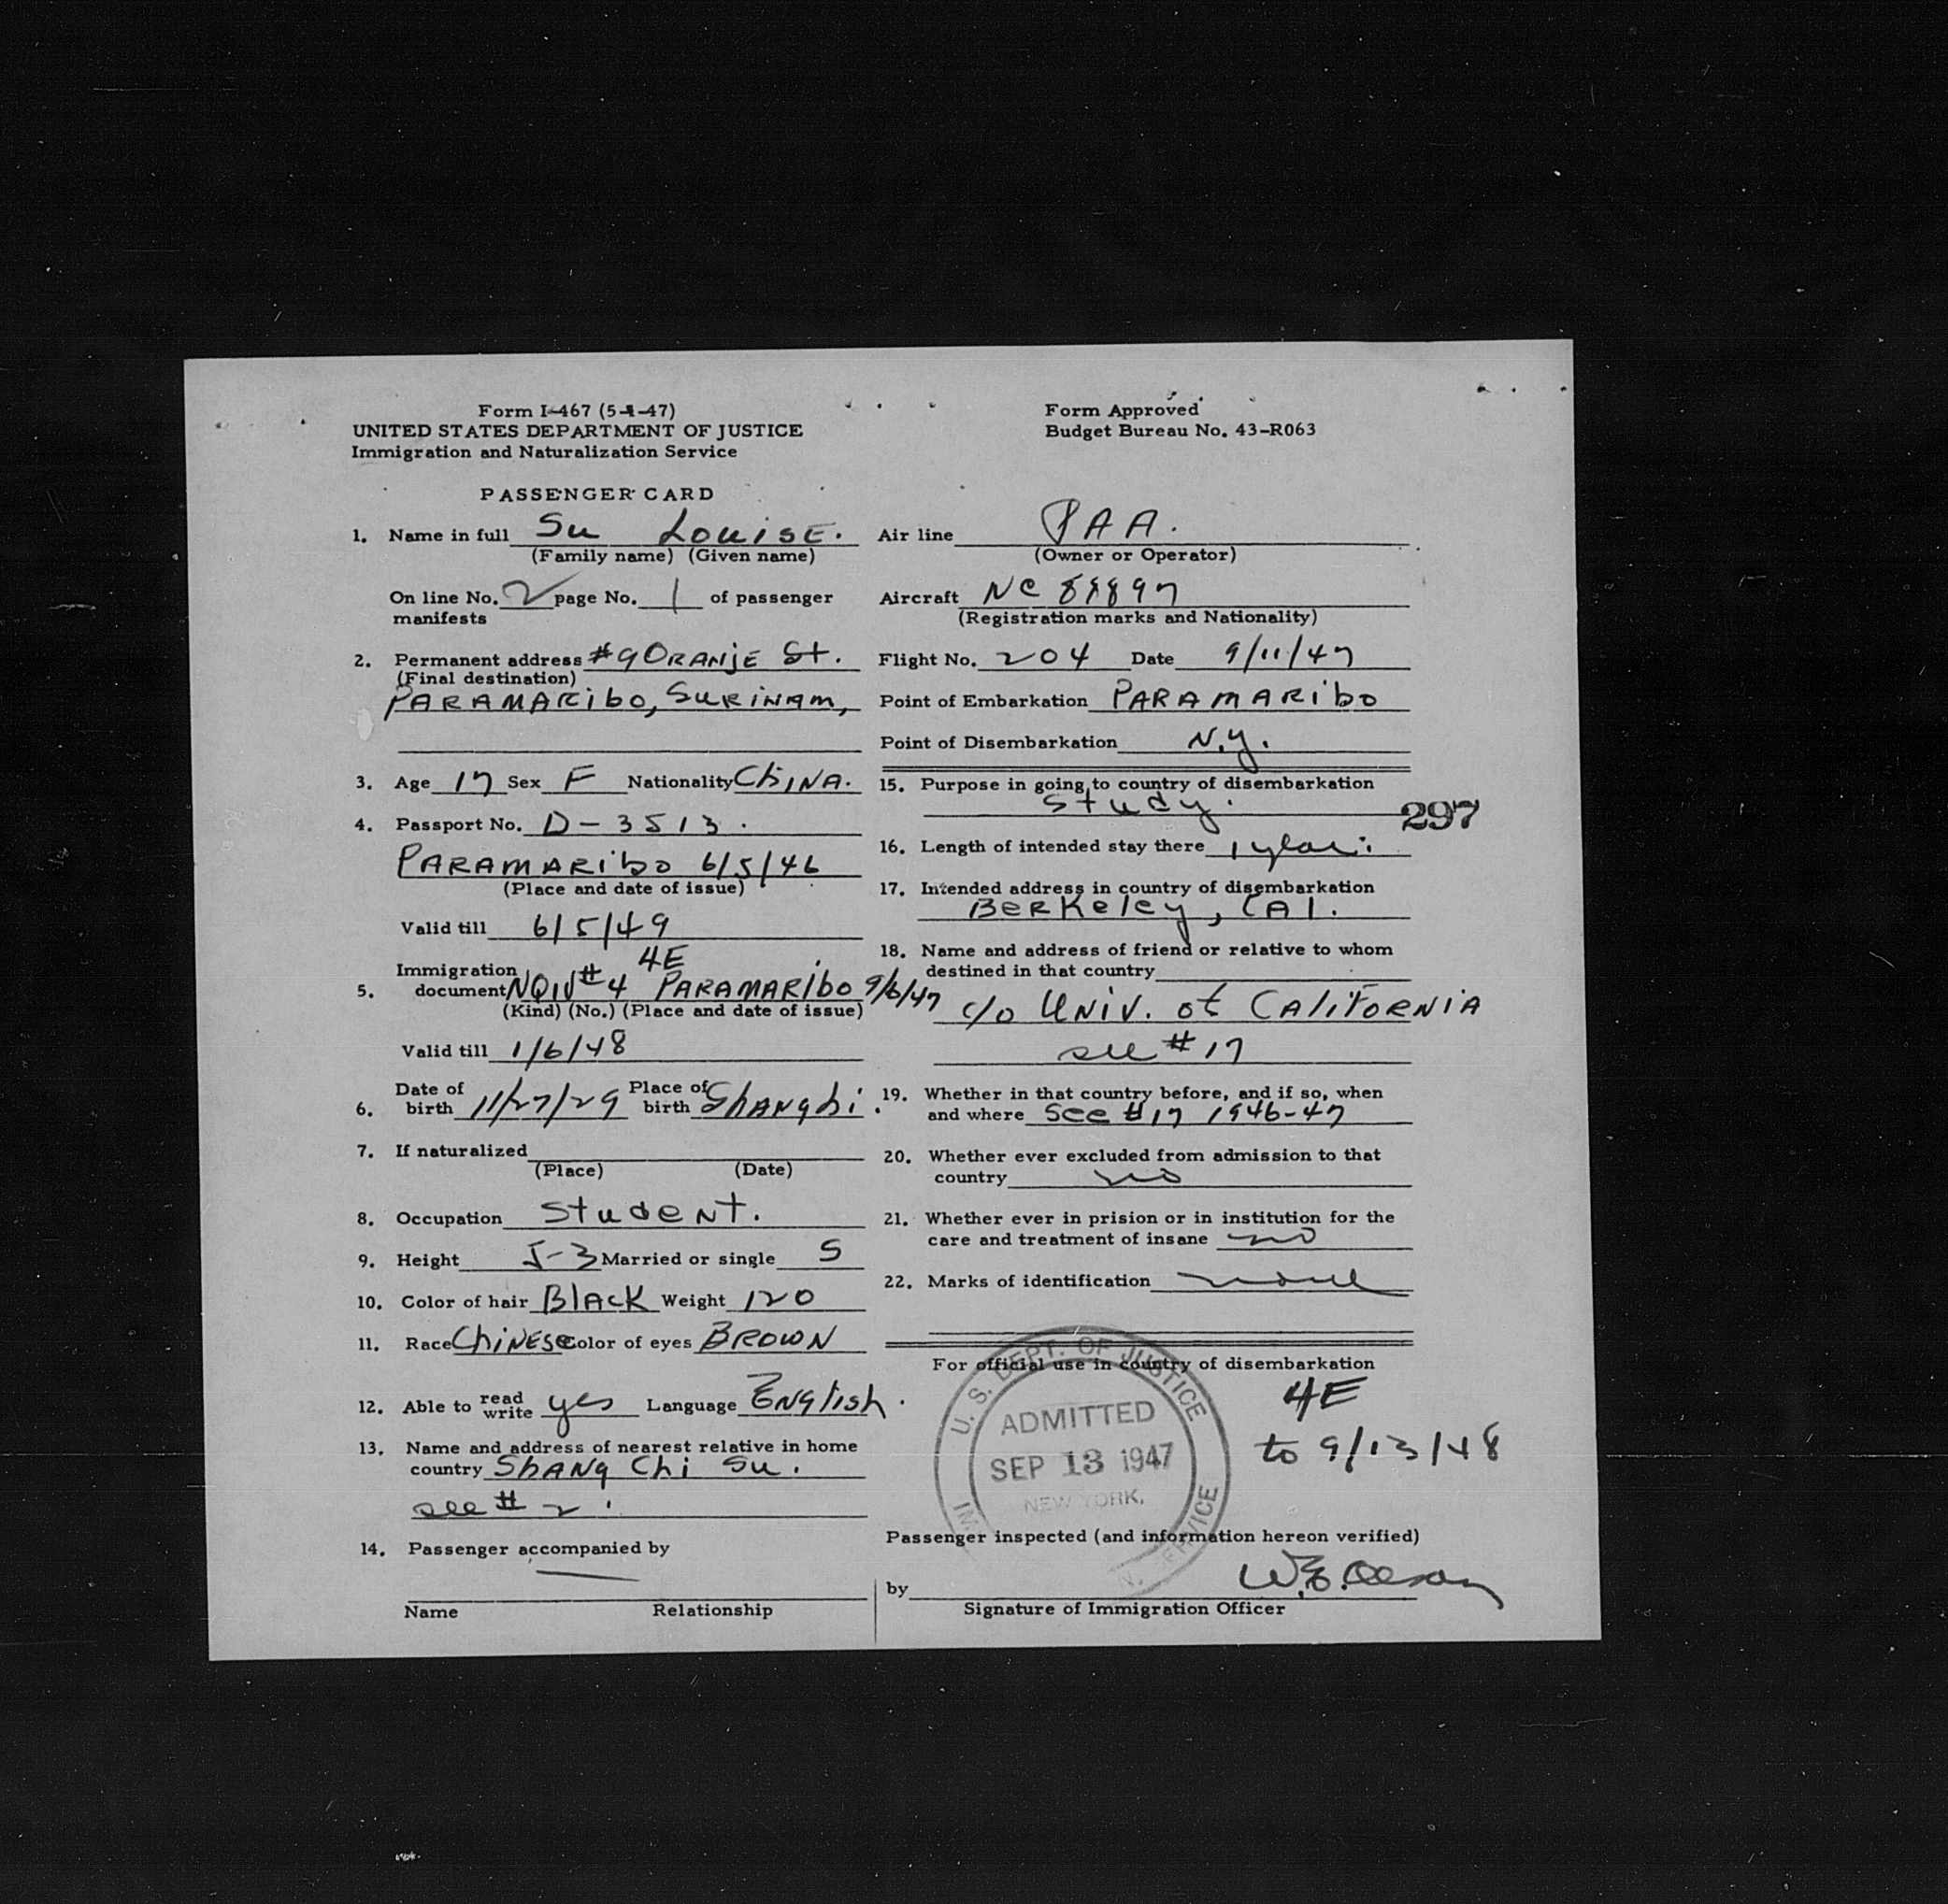 Form I-467 (5-1-47)
UNITED STATES DEPARTMENT OF JUSTICE
Immigration and Naturalization Service
PASSENGER CARD
1. Name in full Su Louise.
(Family name) (Given name)
On line No. 2 page No. 1 of passenger
manifests
2. Permanent address #9 ORANJE St.
(Final destination)
PARAMARibo, SURINAM,
3. Age 17 Sex F Nationality ChiNA.
4. Passport No. D-3513.
PARAMARibo 6/5/46
(Place and date of issue)
Valid till 6/5/49
4E
Immigration
5. document NQIV #4 PARAMARIbo 9/6/47
(Kind) (No.) (Place and date of issue)
Valid till 1/6/48
Date of Place of
6. birth 11/27/29 birth Shanghi.
7. If naturalized
(Place) (Date)
8. Occupation Student.
9. Height 5-3 Married or single S
10. Color of hair BlAcK Weight 120
11. Race ChiNESe Color of eyes BROWN
12. Able to read write yes Language ENglish.
13. Name and address of nearest relative in home
country ShANg Chi Su.
see #2.
14. Passenger accompanied by
Name Relationship
Form Approved
Budget Bureau No. 43-R063
Air line PAA.
(Owner or Operator)
Aircraft NC 88897
(Registration marks and Nationality)
Flight No. 204 Date 9/11/47
Point of Embarkation PARAMARibo
Point of Disembarkation N.Y.
15. Purpose in going to country of disembarkation
Study.
297
16. Length of intended stay there 1 year.
17. Intended address in country of disembarkation
BeRKeley, CAl.
18. Name and address of friend or relative to whom
destined in that country
c/o UNiV. of CAliFORNiA
see #17
19. Whether in that country before, and if so, when
and where See #17 1946-47
20. Whether ever excluded from admission to that
country no
21. Whether ever in prision or in institution for the
care and treatment of insane no
22. Marks of identification none
For official use in country of disembarkation
U.S. DEPT. OF JUSTICE
ADMITTED
SEP 13 1947
NEW YORK,
4E
to 9/13/48
Passenger inspected (and information hereon verified)
by W.E. Olson
Signature of Immigration Officer